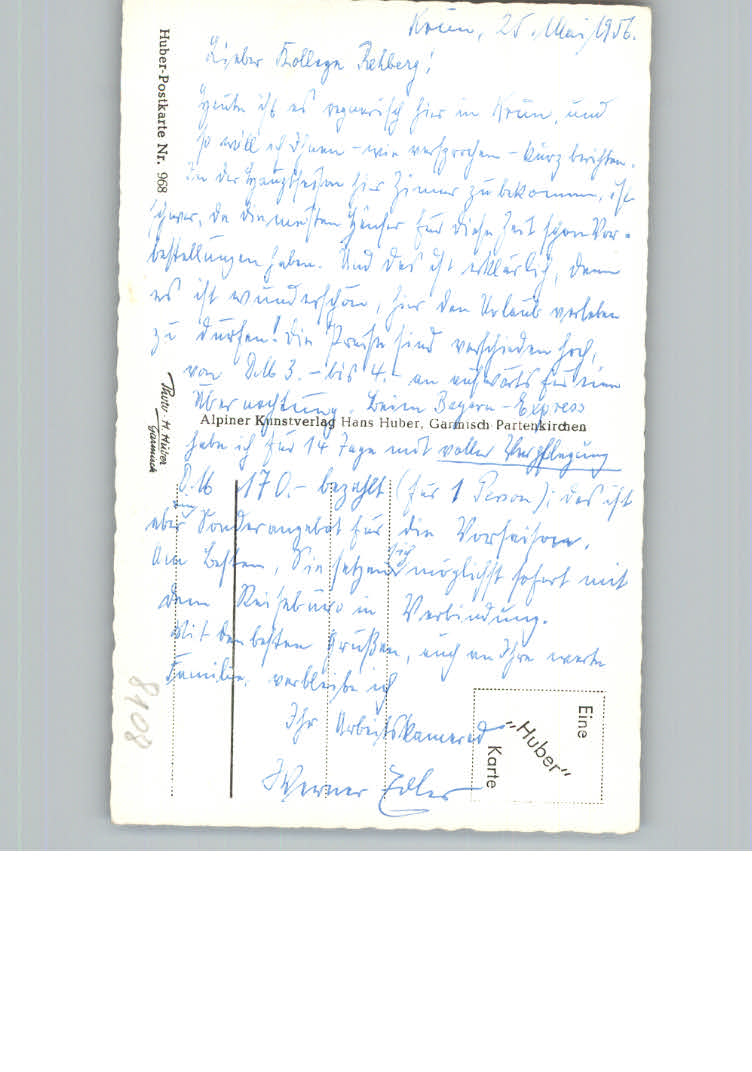 Krün, 25. Mai 1956.
Lieber Kollege Rehberg!
Heute ist es regnerisch hier in Krün, und
so will ich Ihnen - wie versprochen - kurz berichten.
In der Hauptsaison hier Zimmer zu bekommen, ist
schwer, da die meisten Häuser für diese Zeit schon Vor-
bestellungen haben. Und das ist erklärlich, denn
es ist wunderschön, hier den Urlaub verleben
zu dürfen! Die Preise sind verschieden hoch,
von DM 3.- bis 4.- an aufwärts für eine
Übernachtung. Beim Bayern-Express
habe ich für 14 Tage mit voller Verpflegung
DM 170.- bezahlt (für 1 Person); das ist
aber Sonderangebot für die Vorsaison.
Am Besten, Sie setzen sich möglichst sofort mit
dem Reisebüro in Verbindung.
Mit den besten Grüßen, auch an Ihre werte
Familie, verbleibe ich
Ihr Arbeitskamerad
Werner Edler
Huber-Postkarte Nr. 968
Photo-H. Huber
Garmisch
Alpiner Kunstverlag Hans Huber, Garmisch Partenkirchen
Eine
„Huber"
Karte
8108